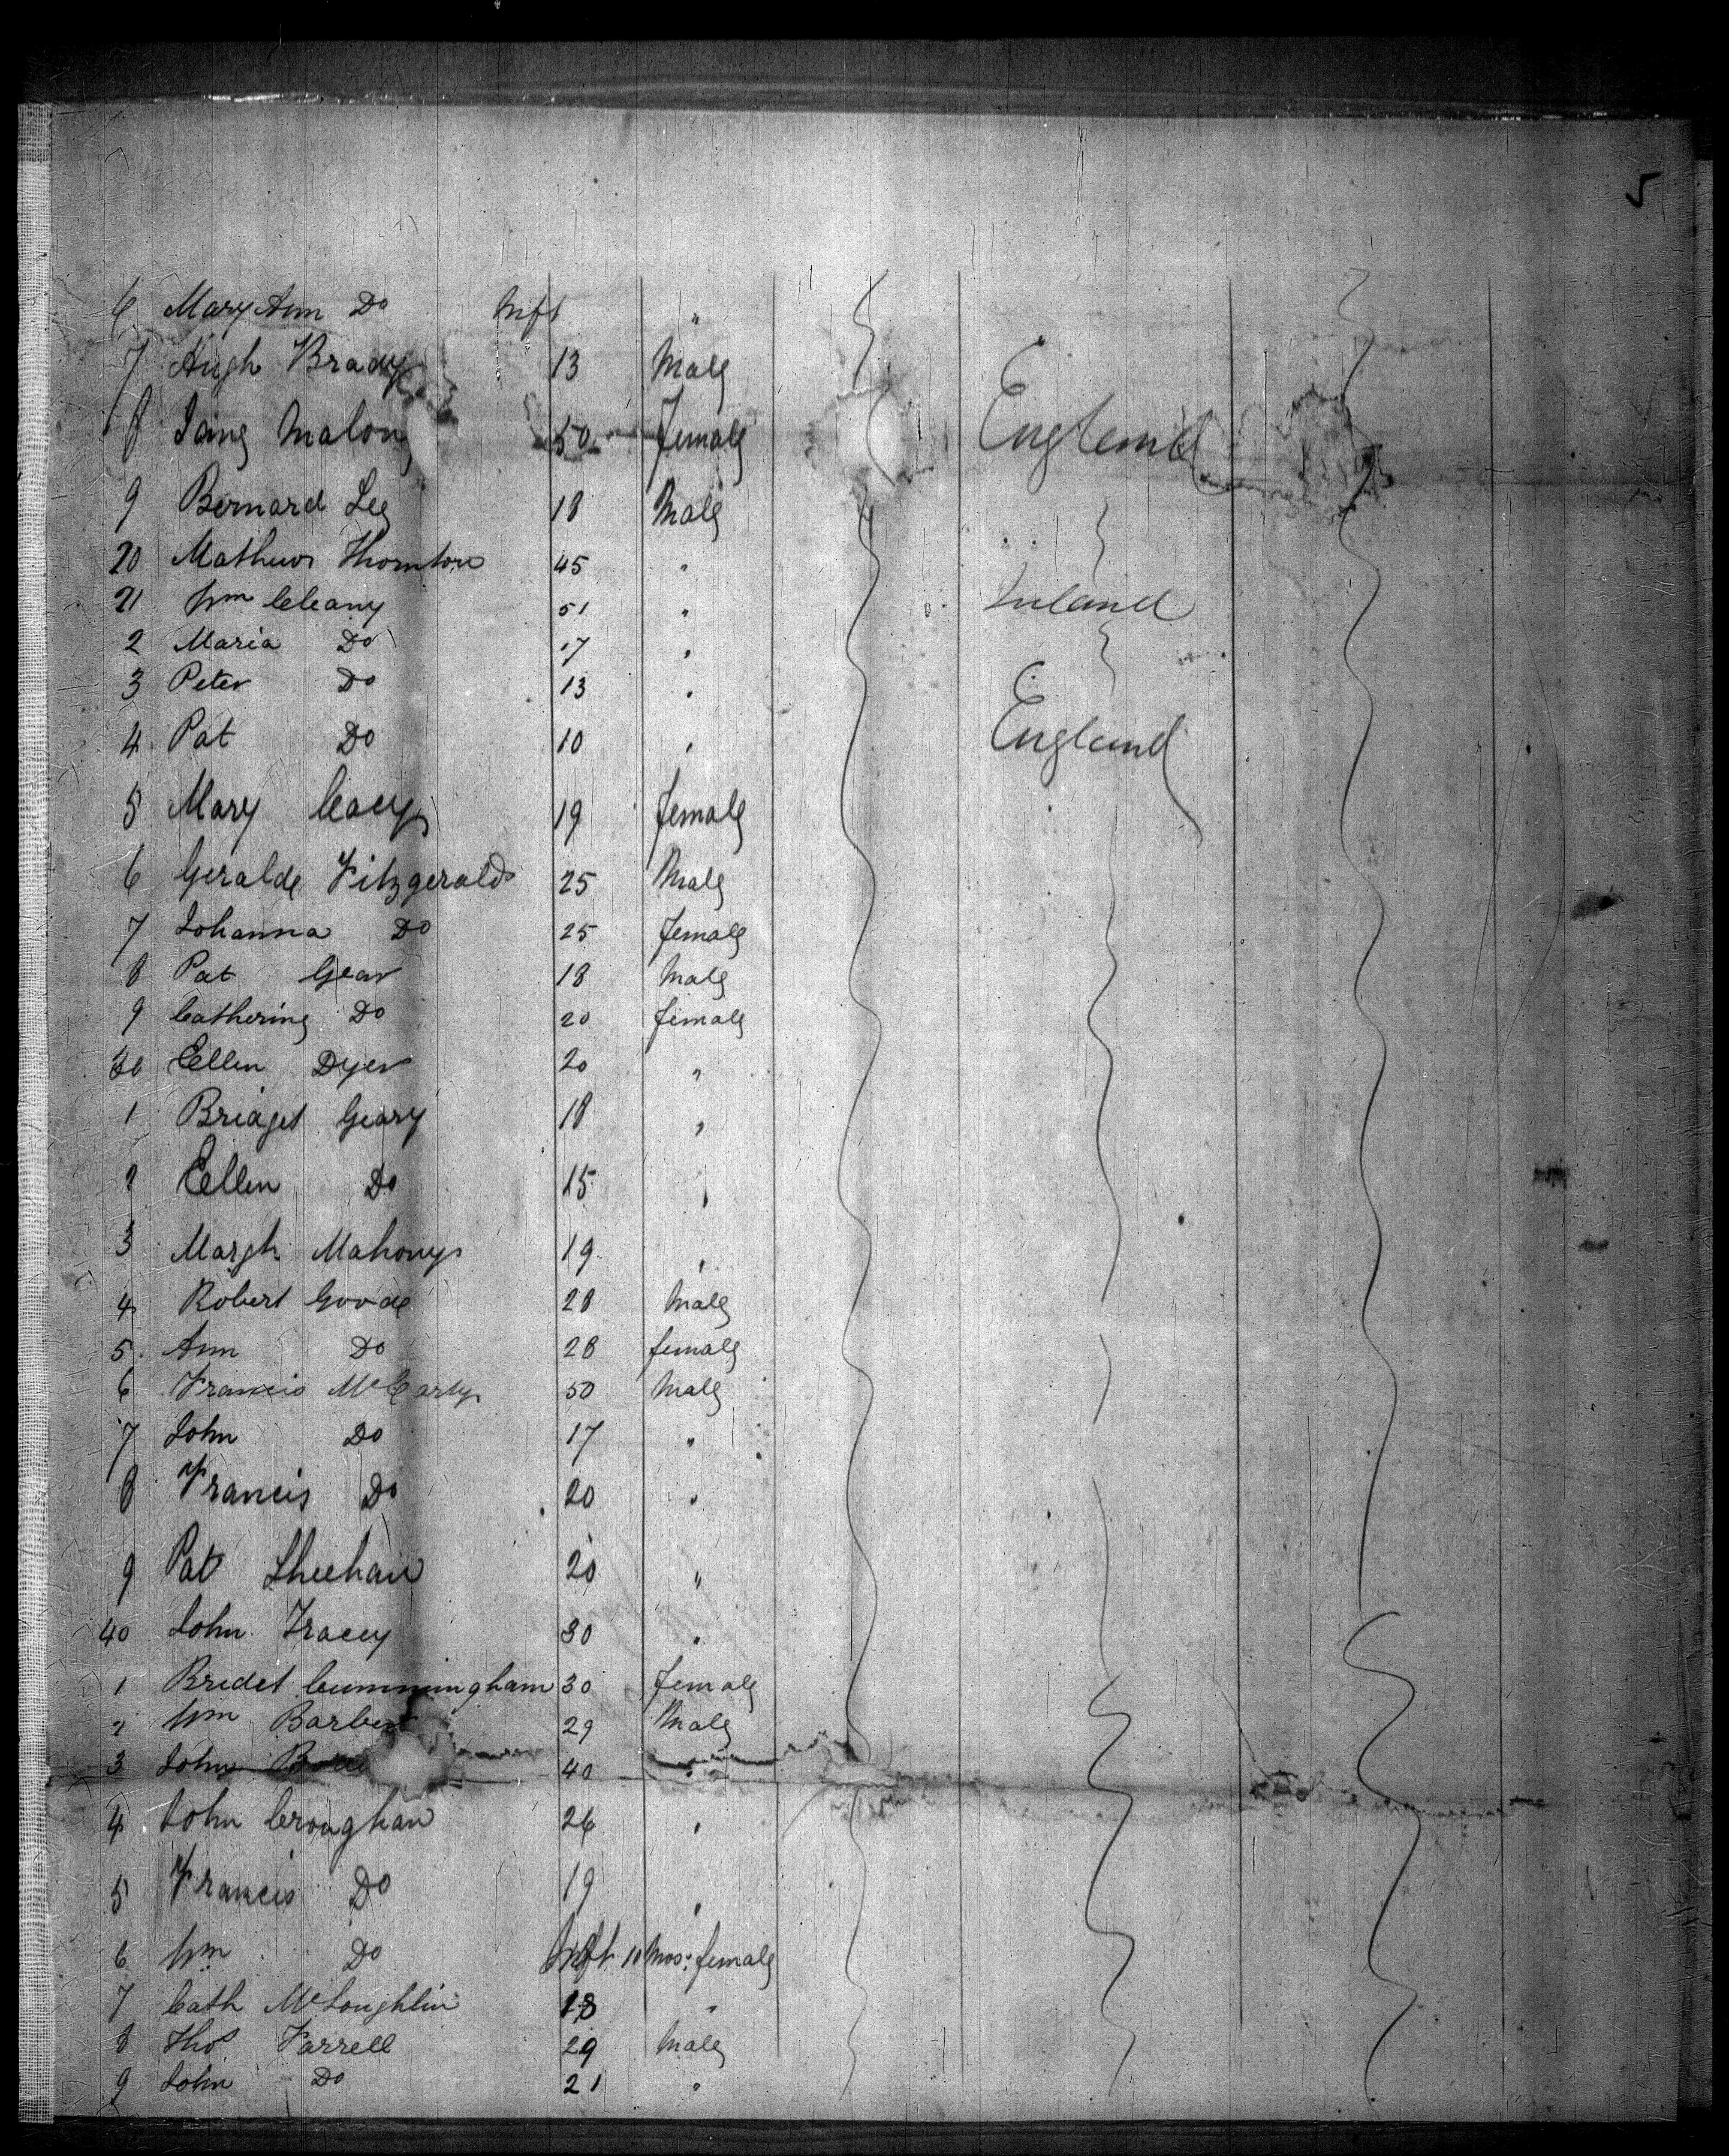 5
6 Mary Ann Do Inft "
7 Hugh Brady 13 Male
8 Jane Malony 50 female England
9 Bernard Lee 18 Male
20 Mathew Thornton 45 "
21 Wm Cleany 51 " Ireland
2 Maria Do 17 "
3 Peter Do 13 "
4 Pat Do 10 " England
5 Mary Cacy 19 female
6 Geralde Fitzgerald 25 Male
7 Johanna Do 25 female
8 Pat Gear 18 Male
9 Catherine Do 20 female
30 Eellen Dyer 20 "
1 Bridget Geary 18 "
2 Eellen Do 15 "
3 Margt Mahony 19 "
4 Robert Goode 28 Male
5 Ann Do 28 female
6 Francis McCarty 50 Male
7 John Do 17 "
8 Francis Do 20 "
9 Pat Sheehan 20 "
40 John Tracey 30 "
1 Bridet Cummingham 30 female
2 Wm Barber 29 Male
3 John 40 "
4 John Croughan 26 "
5 Francis Do 19 "
6 Wm Do Inft 10 Mos: female
7 Cath McLoughlin 18 "
8 Thos Farrell 29 Male
9 John Do 21 "